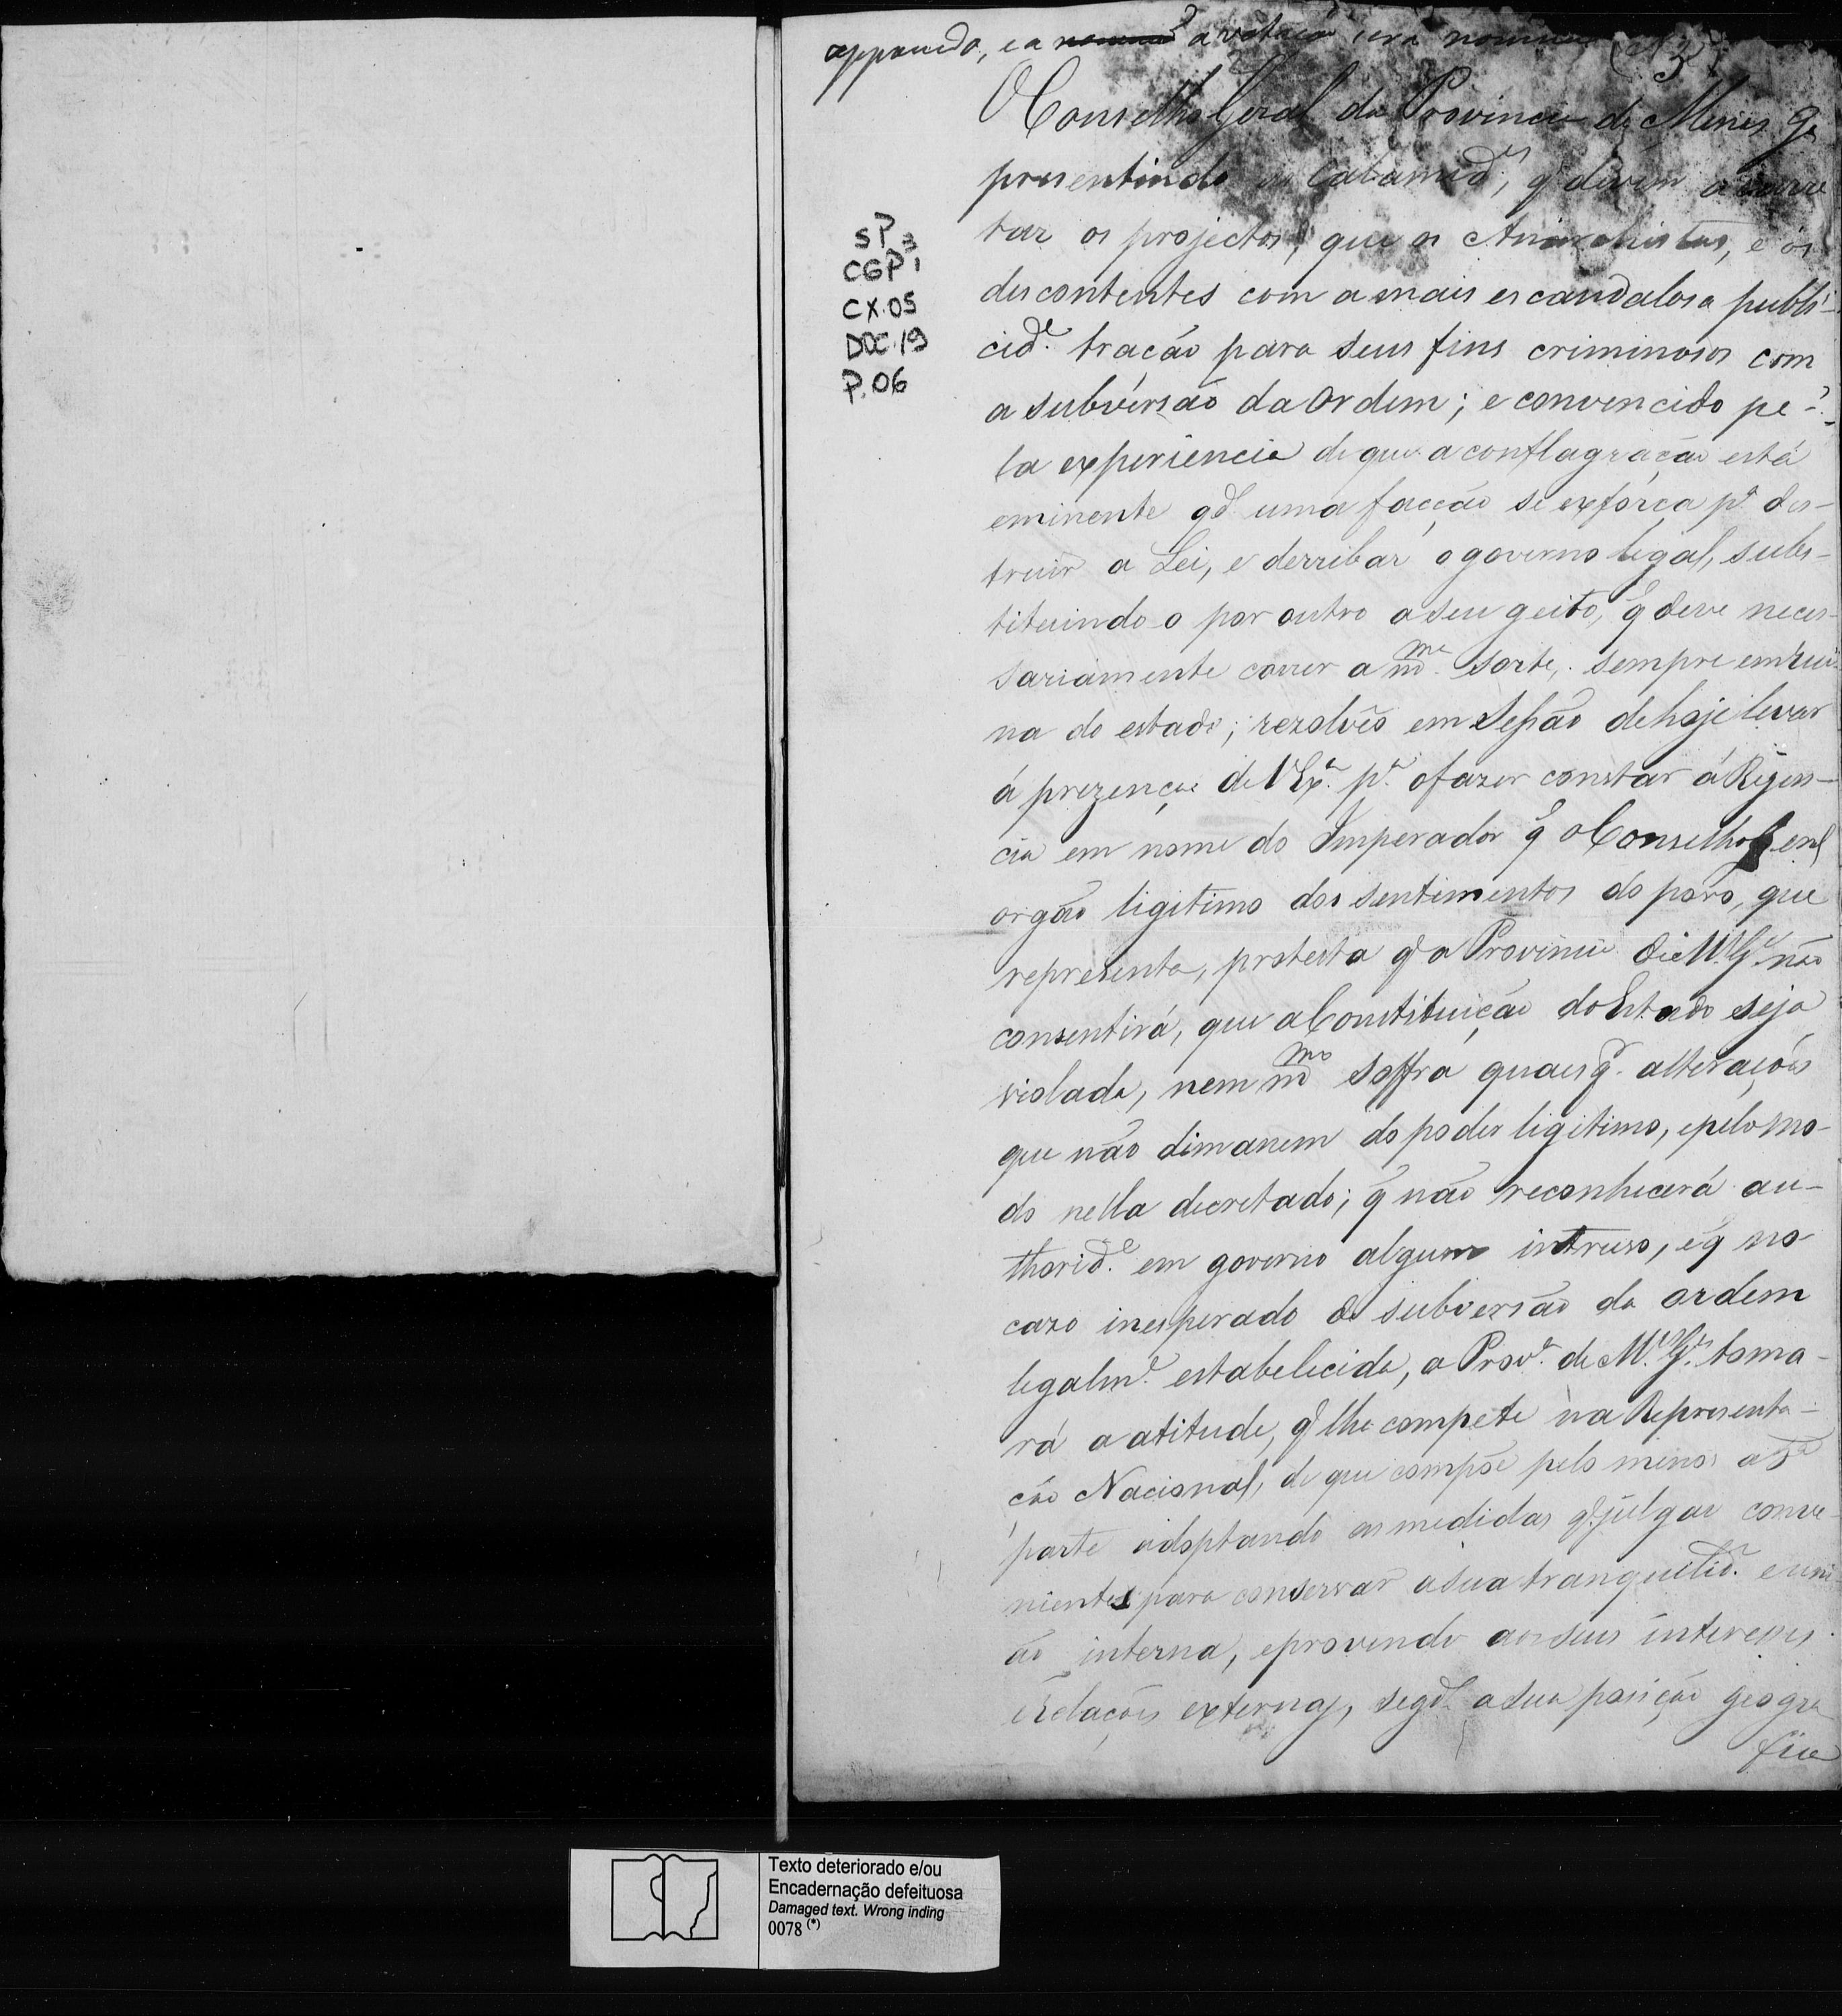 appoiada, e a a votação será
(N 3)
O Conselho Geral da Provincia de Minas Gs
presentindo as Calamides, q' devem acarre
tar os projectos, que os Anarchistas, e os
descontentes com a mais escandalosa publi-
cide. tração para seus fins criminosos com
a subversão da Ordem; e convencido pe-
la experiencia de que a conflagração está
eminente qdo uma facção se exforça pa. des-
truir a Lei, e derribar o governo legal, subs-
tituindo o por outro a seu geito, q' deve neces-
sariamente correr a mma sorte, sempre em rui-
na do estado; rezolvêo em Sessão de hoje levar
á prezença de V Exa. pa. o fazer constar á Regen-
cia em nome do Imperador q' o Conselho Geral
orgão ligitimo dos sentimentos do povo, que
representa, protesta q' a Provincia de Ms Gs não
consentirá, que a Constituição do Estado seja
violada, nem mmo soffra quaesqr. alterações
que não dimanem do poder ligitimo, e pelo mo-
do nella decretado; q' não reconhecerá au-
thoride. em governo algum intruso, e q' no
cazo inesperado de subversão da ordem
legalme. estabelecida, a Prova. de Ms. Gs. toma-
rá a atitude, q' lhe compete na Representa-
ção Nacional, de que compõe pelo menos a 5a
parte adoptando as medidas q' julgar conve-
nientes para conservar a sua tranquilide. e uni-
ão interna, e provendo aos seus interesses
e relações externas, segdo. a sua posição geogra
fica
SP
CGP 1
3
CX.05
DOC.19
P.06
Texto deteriorado e/ou
Encadernação defeituosa
Damaged text. Wrong inding
0078 (*)